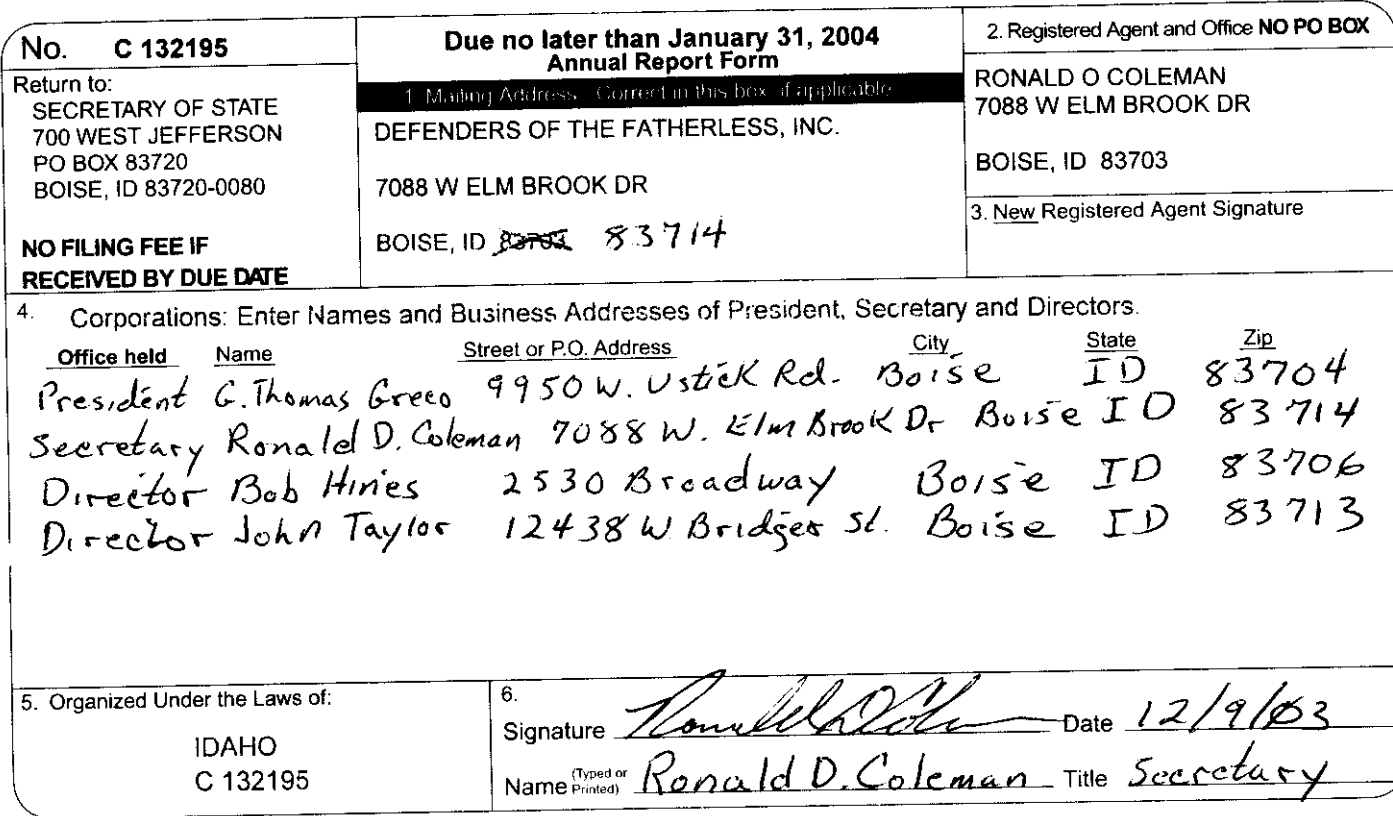 No. C 132195
Return to:
SECRETARY OF STATE
700 WEST JEFFERSON
PO BOX 83720
BOISE, ID 83720-0080
NO FILING FEE IF
RECEIVED BY DUE DATE
Due no later than January 31, 2004
Annual Report Form
1. Mailing Address - Correct in this box, if applicable
DEFENDERS OF THE FATHERLESS, INC.
7088 W ELM BROOK DR
BOISE, ID 83703 83714
2. Registered Agent and Office NO PO BOX
RONALD O COLEMAN
7088 W ELM BROOK DR
BOISE, ID 83703
3. New Registered Agent Signature
4. Corporations: Enter Names and Business Addresses of President, Secretary and Directors.
Office held Name Street or P.O. Address City State Zip
President G. Thomas Greco 9950 W. Ustick Rd. Boise ID 83704
Secretary Ronald D. Coleman 7088 W. Elm Brook Dr Boise ID 83714
Director Bob Hines 2530 Broadway Boise ID 83706
Director John Taylor 12438 W Bridger St. Boise ID 83713
5. Organized Under the Laws of:
IDAHO
C 132195
6.
Signature Ronald D Coleman Date 12/9/03
Name (Typed or Printed) Ronald D. Coleman Title Secretary